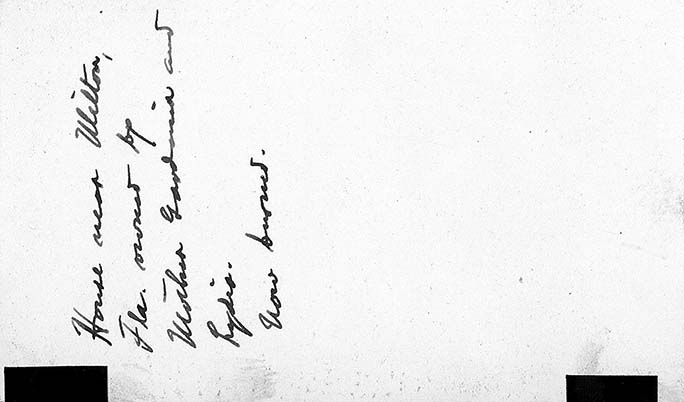 House near Milton,
Fla. owned by
Mother Gardenia and
Lydia.
Now burned.